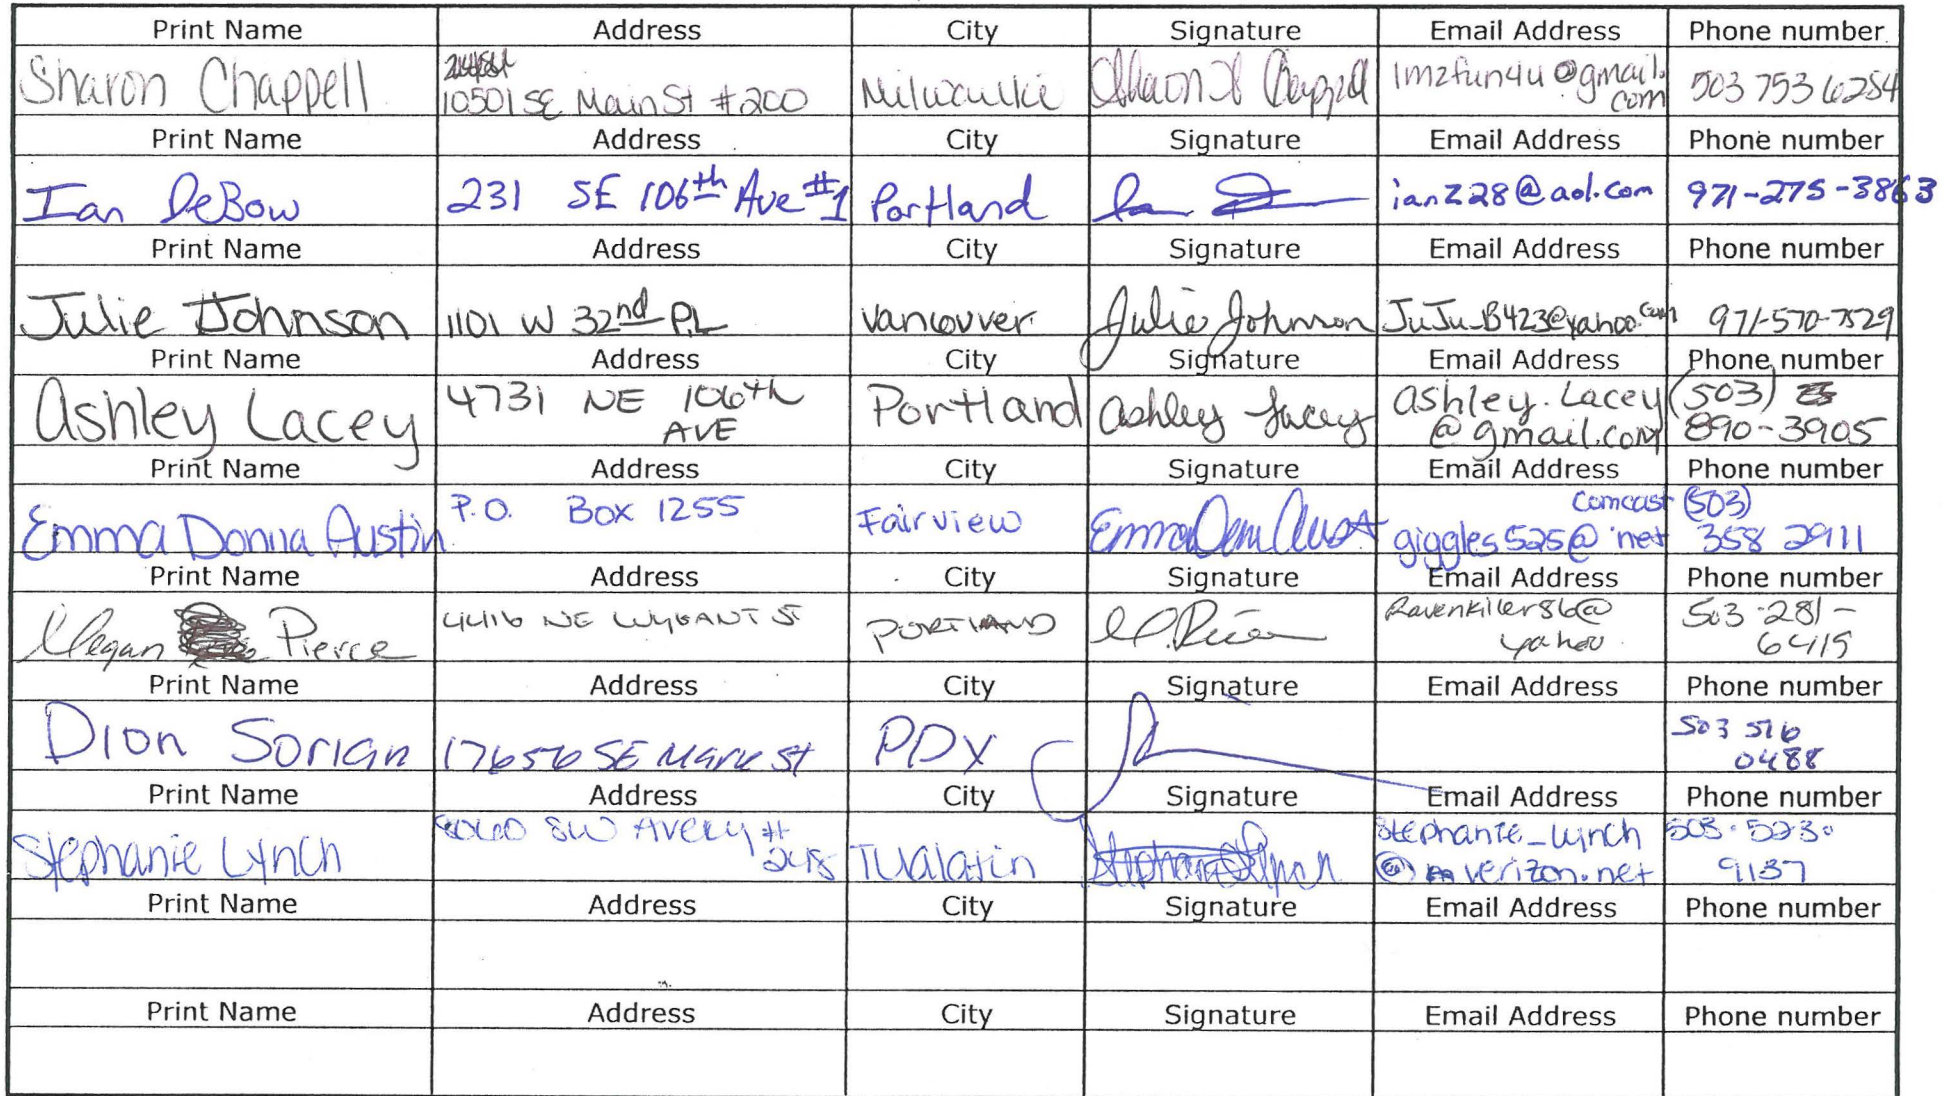 Print Name Address City Signature Email Address Phone number
Sharon Chappell 10501 SE Main St #200 Milwaukie 1mzfun4u@gmail. 503 753 6254
com
Print Name Address City Signature Email Address Phone number
Ian DeBow 231 SE 106th Ave #1 Portland ianz28@aol.com 971-275-3863
Print Name Address City Signature Email Address Phone number
Julie Johnson 1101 W 32nd PL Vancouver Julie Johnson JuJu_B423@yahoo.com 971-570-7529
Print Name Address City Signature Email Address Phone number
Ashley Lacey 4731 NE 106th Portland Ashley Lacey ashley.Lacey (503)
AVE @gmail.com 890-3905
Print Name Address City Signature Email Address Phone number
P.O. Box 1255 Fairview comcast (503)
Emma Donna Austin giggles525@ .net 358 2911
Print Name Address City Signature Email Address Phone number
Megan Pierce 4416 NE WYGANT ST PORTLAND M. Pierce Ravenkiller86@ 503-281-
yahoo 6415
Print Name Address City Signature Email Address Phone number
Dion Sorian 17656 SE Mark St PDX 503 516
0488
Print Name Address City Signature Email Address Phone number
Stephanie Lynch SW Avery # Tualatin Stephanie_Lynch 503-523-
248 @ verizon.net 9137
Print Name Address City Signature Email Address Phone number
Print Name Address City Signature Email Address Phone number